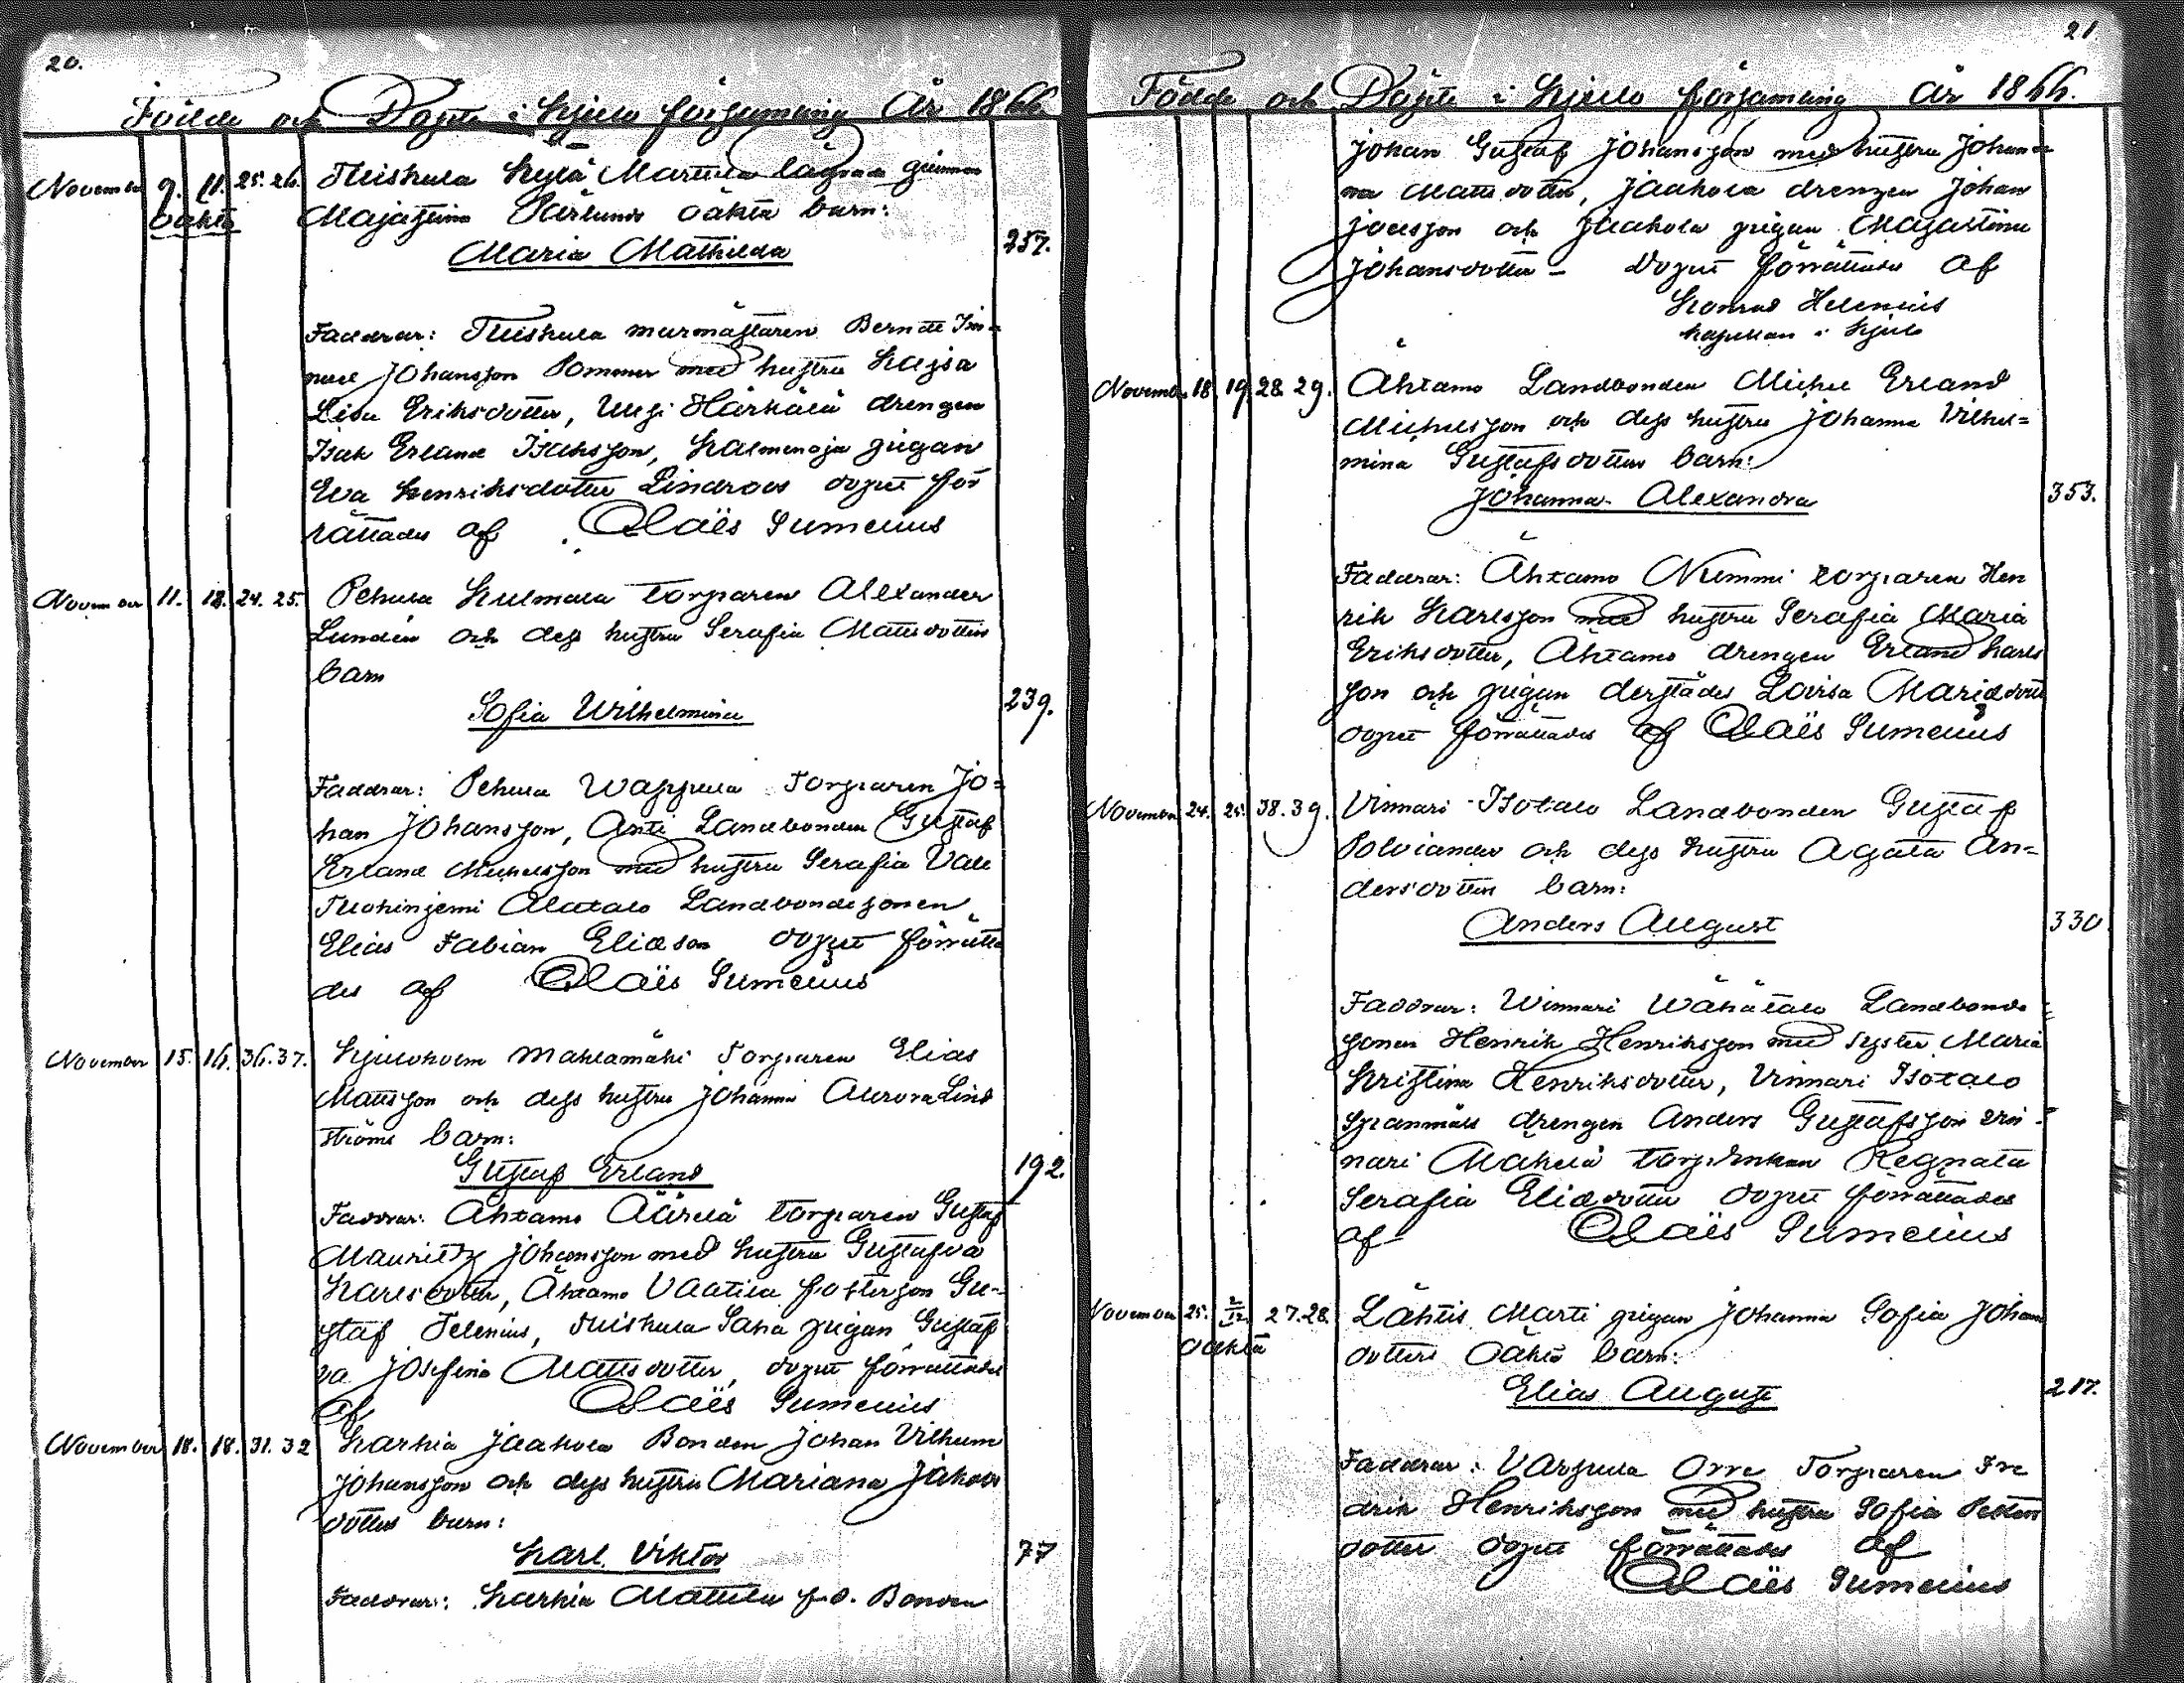 20.
Födde och Döpte i Kjulo församling År 1866.
November 9. 11. 25. 26. Kylä Marttila lägrade qvinnan
oäkta Majastina oäkta barn:
Maria Mathilda 257.
Faddrar: murmästaren Berndt Im=
nuel Johansson Pommer med hustru Kajsa
Lisa Eriksdotter, Uusi Härkälä drengen
Isak Erland Isaksson, pigan
Eva Henriksdotter Lindroos dopet för
rättades af Claës Sumelius
November 11. 12. 24. 25. Pehula Kulmala torparen Alexander
Lundén och dess hustru Serafia Mattsdotters
barn
Sofia Wilhelmina 239.
Faddrar: Pehula Wappula Torparen Jo=
han Johansson, Anti Landbonden Gustaf
Erland Michelsson med hustru Serafia
Alatalo Landbondesonen
Elias Fabian Eliasson dopet förrätta
des af Claës Sumelius
November 15. 16. 36. 37. Kjuloholm Mahlamäki Torparen Elias
Mattsson och dess hustru Johanna Aurora Lind
ströms barn:
Gustaf Erland 192.
Faddrar: Ahtamo Äärelä torparen Gustaf
Mauritz Johansson med hustru Gustafva
Karlsdotter, Ahtamo Vaatila fosterson Gu-
staf Selenius, pigan Gustaf
va Josefina Mattsdotter, dopet förrättades
af Claës Sumelius
November 18. 18. 31. 32 Karhia Jaakola Bonden Johan Vilhelm
Johansson och dess hustru Mariana Jakobs
dotters barn:
Karl Viktor 77
Faddrar: Karhia Mattila f.d. Bonden
21.
Födde och Döpte i Kjulo församling År 1866.
Johan Gustaf Johansson med hustru Johan-
na Mattsdotter, Jaakola drengen Johan
Joelsson och Jaakola pigan Majastina
Johansdotter - Dopet förrättades af
Konrad Helenius
kapellan i Kjulo
November 18. 19. 28. 29. Ahtamo Landbonden Michel Erland
Michelsson och dess hustru Johanna Vilhel=
mina Gustafsdotters barn:
Johanna Alexandra 353.
Faddrar: Ahtamo Nummi torparen Hen
rik Karlsson med hustru Serafia Maria
Eriksdotter, Ahtamo drengen Erland Karls
son och pigan derstädes Lovisa
dopet förrättades af Claës Sumelius
November 24. 25. 38. 39. Vinnari Isotalo Landbonden Gustaf
Polviander och dess hustru Agata An=
dersdotters barn:
Anders August 330
Faddrar: Winnari Wähätalo Landbonde=
sonen Henrik Henriksson med syster Maria
Kristina Henriksdotter, Vinnari Isotalo
drengen Anders Gustafsson Vin-
nari Mäkelä torp.enkan Regnata
Serafia dopet förrättades
af Claës Sumelius
November 25. 2/12 27. 28. Lähtis Marti pigan Johanna Sofia Johans
oäkta dotters Oäkta barn:
Elias August 217.
Faddrar: Varpula Orre Torparen Fre
drik Henriksson med hustru Sofia
dotter dopet förrättades af
Claës Sumelius